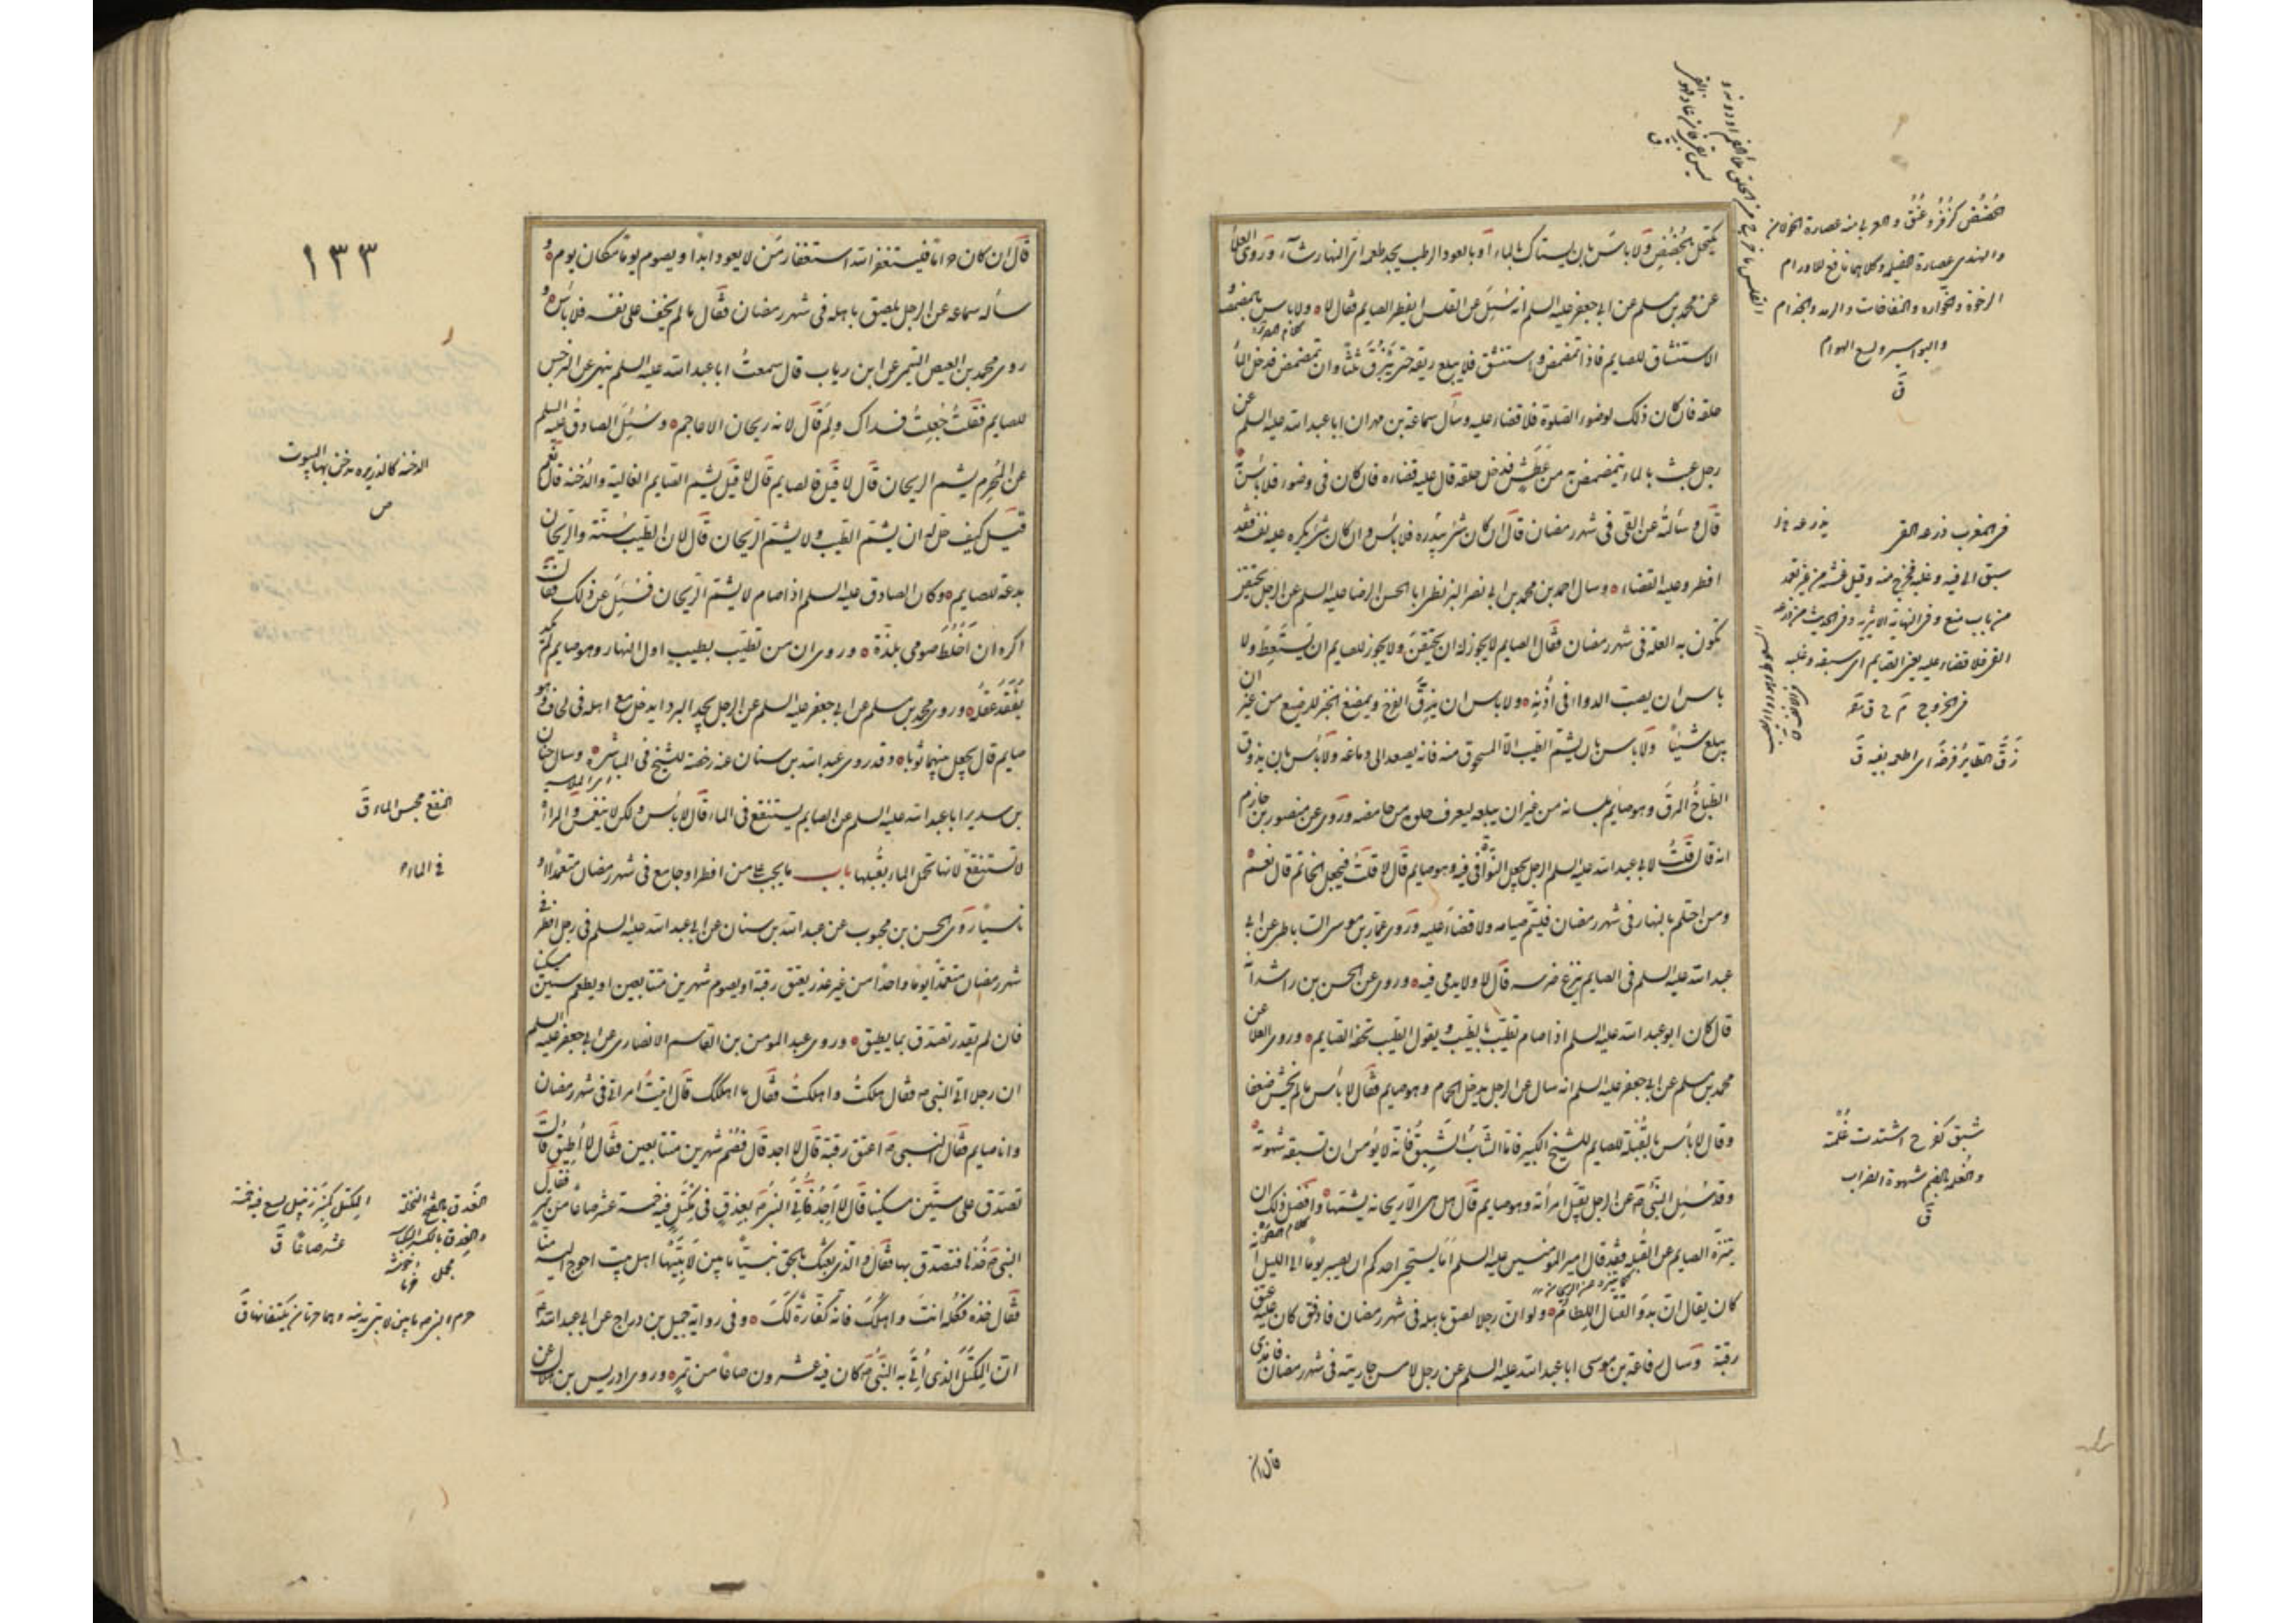 يكتحل بالحضض ولا باس بان يستاك بالماء او بالعود الرطب يجد طعمه اى النهار شاء وروى العلا
عن محمد بن مسلم عن ابى جعفر عليه السلم انه سئل عن القلس ايفطر الصايم فقال لا ولا باس بالمضمضة و
الاستنشاق للصايم فاذا تمضمض واستنشق فلا يبلع ريقه حتى يبزق ثلثا وان تمضمض فدخل الماء
حلقه فان كان ذلك لوضوء الصلوة فلا قضاء عليه وسأل سماعة بن مهران ابا عبد الله عليه السلم عن
رجل عبث بالماء يتمضمض به من عطش فدخل حلقه قال عليه قضاؤه فان كان فى وضوء فلا باس به
قال وسألته عن القى فى شهر رمضان قال ان كان شئ يبدره فلا باس وان كان شئ يكره عليه نفسه فقد
افطر وعليه القضاء وسال احمد بن محمد بن ابى نصر البزنطى ابا الحسن الرضا عليه السلم عن الرجل يحتقن
تكون به العلة فى شهر رمضان فقال الصايم لا يجوز له ان يحتقن ولا يجوز للصايم ان يستعط ولا
باس ان يصب الدواء فى اذنه ولا باس ان يزق الفرخ ويمضغ الخبز للرضيع من غير ان
يبلع شيئا ولا باس بان يشتم الطيب الا المسحوق منه فانه يصعد الى دماغه ولا باس بان يذوق
الطباخ المرق وهو صايم بلسانه من غير ان يبلعه ليعرف حلوه من حامضه وروى عن منصور بن حازم
انه قال قلت لابى عبد الله عليه السلم الرجل يجعل النواة فى فيه وهو صايم قال لا قلت فيجعل الخاتم قال نعم
ومن احتلم بالنهار فى شهر رمضان فليتم صيامه ولا قضاء عليه وروى عمار بن موسى الساباطى عن ابى
عبد الله عليه السلم فى الصايم ينزع ضرسه قال لا ولا يدمى فيه وروى عن الحسن بن راشد انه
قال كان ابو عبد الله عليه السلم اذا صام تطيب بالطيب ويقول الطيب تحفة الصايم وروى العلا عن
محمد بن مسلم عن ابى جعفر عليه السلم انه سال عن الرجل يدخل الحمام وهو صايم فقال لا بأس ما لم يخش ضعفا
وقال لا باس بالقبلة للصايم للشيخ الكبير فاما الشاب الشبق فانه لا يؤمن ان تسبقه شهوته
وقد سئل النبى ص عن الرجل يقبل امرأته وهو صايم قال هل هى الا ريحانة يشتمها وافضل ذلك ان
يتنزه الصايم عن القبلة فقد قال امير المؤمنين عليه السلم اما يستحيى احدكم ان يصبر يوما الى الليل انه
كان يقال ان بدو القتال اللطام ولو ان رجلا لصق باهله فى شهر رمضان فادفق كان عليه عتق
رقبة وسال رفاعة بن موسى ابا عبد الله عليه السلم عن رجل لامس جاريته فى شهر رمضان فامذى
قال ان
الحضض كزفر وعنق والعربى منه عصارة الخولان
والهندى عصارة الفيلزهرج وكلاهما نافع للاورام
الرخوة والخوارة والنفاخات والرمد والجذام
والبواسير ولسع الهوام
ق
فى المغرب ذرعه القى
سبق الى فيه وغلبه فخرج منه وقيل غشيه من غير تعمد
من باب منع وفى النهاية الاثيرية وفى الحديث من ذرعه
القى فلا قضاء عليه يعنى الصايم اى سبقه وغلبه
فى الخروج
زق الطاير فرخه اى اطعمه بفيه ق
شبق كفرح اشتدت غلمته
والغلمة بالضم شهوة الضراب
ق
١٣٣
قال ان كان حراما فليستغفر الله استغفار من لا يعود ابدا ويصوم يوما مكان يوم و
سأله سماعة عن الرجل يلصق باهله فى شهر رمضان فقال ما لم يخف على نفسه فلا باس و
روى محمد بن الفيض التيمى عن ابن رياب قال سمعت ابا عبد الله عليه السلم ينهى عن النرجس
للصايم فقلت جعلت فداك ولم قال لانه ريحان الاعاجم وسئل الصادق عليه السلم
عن المحرم يشم الريحان قال لا قيل فالصايم قال لا قيل يشم الصايم الغالية والدخنة قال نعم
قيل كيف حل له ان يشم الطيب ولا يشم الريحان قال لان الطيب سنة والريحان
بدعة للصايم وكان الصادق عليه السلم اذا صام لا يشم الريحان فسئل عن ذلك فقال
اكره ان اخلط صومى بلذة وروى ان من تطيب بطيب اول النهار وهو صايم لم يكد
يفقد عقله وروى محمد بن مسلم عن ابى جعفر عليه السلم عن الرجل يجد البرد ايدخل مع اهله فى لحاف وهو
صايم قال يجعل بينهما ثوبا وقد روى عبد الله بن سنان عنه رخصة للشيخ فى المباشرة وسال حنان
بن سدير ابا عبد الله عليه السلم عن الصايم يستنقع فى الماء قال لا بأس ولكن لا ينغمس والمرأة
لا تستنقع لانها تحمل الماء بقبلها باب ما يجب على من افطر او جامع فى شهر رمضان متعمدا او
ناسيا روى الحسن بن محبوب عن عبد الله بن سنان عن ابى عبد الله عليه السلم فى رجل افطر فى
شهر رمضان متعمدا يوما واحدا من غير عذر يعتق رقبة او يصوم شهرين متتابعين او يطعم ستين مسكينا
فان لم يقدر تصدق بما يطيق وروى عبد المومن بن القاسم الانصارى عن ابى جعفر عليه السلم
ان رجلا اتى النبى ص فقال هلكت واهلكت فقال ما اهلكك قال اتيت امراتى فى شهر رمضان
وانا صايم فقال النبى ص اعتق رقبة قال لا اجد قال فصم شهرين متتابعين فقال لا اطيق قال
تصدق على ستين مسكينا قال لا اجد فاتى النبى ص بعذق فى مكتل فيه خمسة عشر صاعا من تمر فقال
النبى ص خذها فتصدق بها فقال والذى بعثك بالحق نبيا ما بين لابتيها اهل بيت احوج اليه منا
فقال خذه فكله انت واهلك فانه كفارة لك وفى رواية جميل بن دراج عن ابى عبد الله ع
ان المكتل الذى اتى به النبى ص كان فيه عشرون صاعا من تمر وروى ادريس بن هلال عن
الدخنة كالذريرة يدخن بها البيوت
ص
المنقع محبس الماء ق
فى الماء
العذق بالفتح النخلة
المكتل كمنبر زنبيل يسع فيه خمسة
عشر صاعا ق